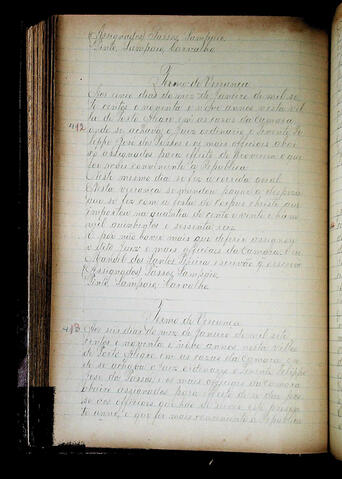 (Assignados) Passos, Sampaio,
Pinto, Sampaio, Carvalho.
Termo de Vereança
Aos cinco dias do mez de Janeiro de mil se
te centos e noventa e nove annos nesta vil
la de Porto Alegre em as cazas da Camara
412
onde se achava o Juiz ordinario o Tenente Fe
lippe Jose dos Passos e os mais officiaes abai
xo assignados para effeito de proverem o que
for mais conveniente a Republica
Neste mesmo dia se fez a corrida geral.
Nesta vereança se mandou pagar a despeza
que se fez com a festa de Corpus Christi que
importou na quantia de cento e vinte e hum
mil quinhentos e sessenta reis
E por não haver mais que deferir assignou
o dito Juiz e mais officiaes da Camara. Eu
Manoel dos Santos escrivão q. escrevi
(Assignados) Passos, Sampaio,
Pinto, Sampaio, Carvalho.
Termo de Vereança
413
Aos seis dias do mez de Janeiro de mil sete
centos e noventa e nove annos nesta villa
de Porto Alegre em as cazas da Camara on
de se achava o Juiz ordinario o Tenente Felippe
Jose dos Passos e os mais officiaes da Camara
abaixo assignados para effeito de se dar pos
se aos officiaes que hão de servir este presen
te anno, e que for mais conveniente a Republica